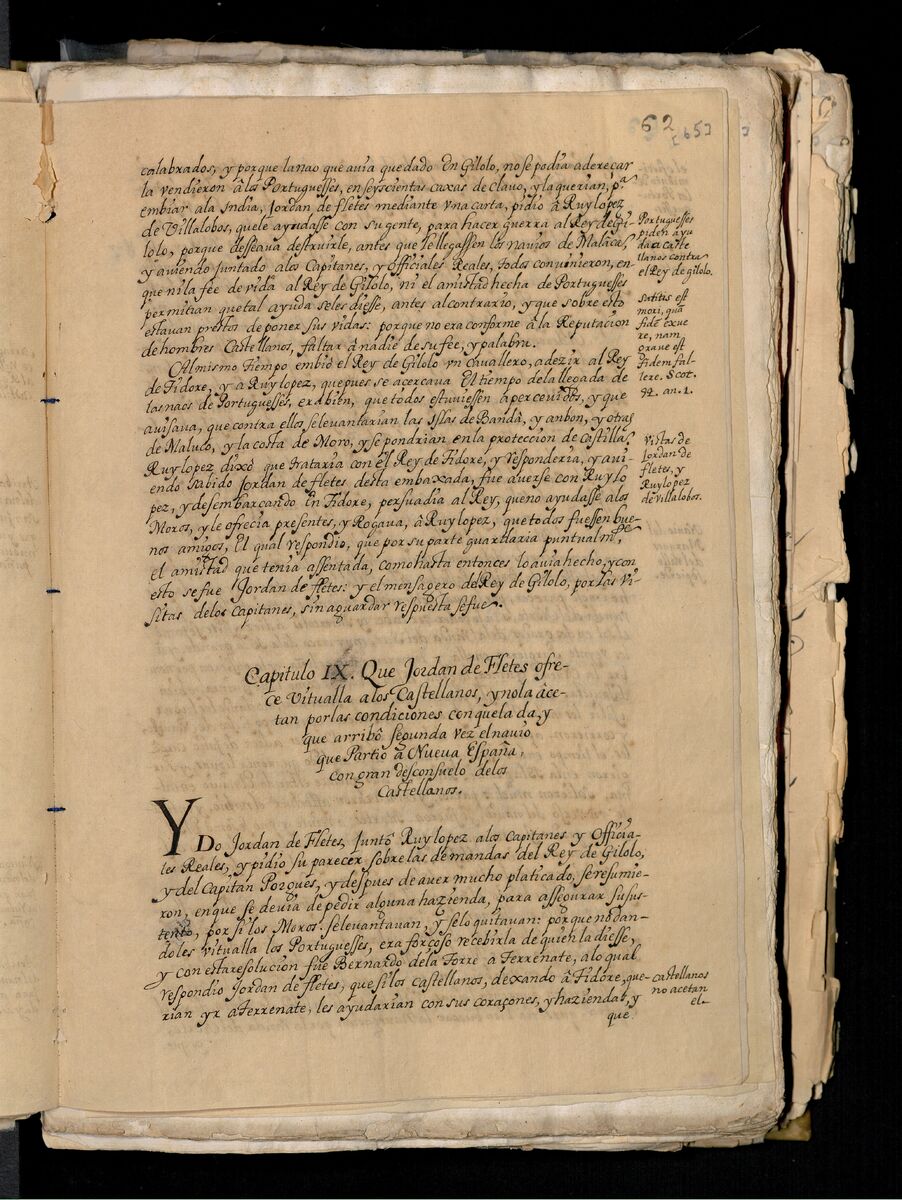 62
[65]
calabrados, y porque la nao que auia quedado En Gilolo, no se podia adereçar
la vendieron à los Portuguesses, en seyscientas caxas de Clavo, y la querian, p.ª
embiar a la India, Jordan de fletes mediante vna carta, pidio à Ruylopez
de Villalobos, que le ayudasse con su gente, para hacer guerra al Rey de Gi-
lolo, porque desseava destruirle, antes que se llegassen los navios de Malaca,
y aviendo Juntado a los Capitanes, y Officiales Reales, todos convinieron, en-
que ni la fee de vida al Rey de Gilolo, ni el amistad hecha de Portuguesses
permitian que tal ayuda se les diesse, antes al contrario, y que sobre esto
estavan prestos de poner sus vidas: porque no era conforme à la Reputacion
de hombres Castellanos, faltar à nadie de su fee, y palabra.
Al mismo tiempo embió el Rey de Gilolo vn Cavallero, a dezir al Rey
de Tidore, y a Ruylopez, que pues se acercava El tiempo de la llegada de
las naos de Portuguesses, era bien, que todos estuviessen apercevidos, y que
avisava, que contra ellos se levantarian las Islas de Banda, y anbon, y otras
de Maluco, y la costa de Moro, y se pondrian en la proteccion de Castilla,
Ruylopez dixo que trataria con el Rey de Tidore, y responderia, y avi-
endo sabido Jordan de fletes desta embaxada, fue a verse con Ruylo
pez, y desembarcando En Tidore, persuadia al Rey, que no ayudasse a los
Moros, y le ofrecia presentes, y Rogava, à Ruylopez, que todos fuessen bue-
nos amigos, El qual respondio, que por su parte guardaria puntualm.te
el amistad que tenia assentada, como hasta entonces lo auia hecho, y con
esto se fue Jordan de fletes: y el mensagero del Rey de Gilolo, por las vi-
sitas de los Capitanes, sin aguardar respuesta se fue.
Portuguesses
piden ayu
da a caste
llanos contra
el Rey de gilolo.
Satius est
mori, quā
fidē exue
re, nam
graue est
Fidem fal-
lere. Scot.
44. an. 1.
Vistas de
Jordan de
fletes, y
Ruylopez
de Villalobos.
Capitulo IX. Que Jordan de Fletes ofre-
ce Vitualla a los Castellanos, y no la àce-
tan por las condiciones con que la da, y
que arribò segunda vez el navio
que Partio à Nueva España,
con gran desconsuelo de los
Castellanos.
YDo Jordan de Fletes, Juntò Ruylopez a los Capitanes y Officia-
les Reales, y pidio su parecer sobre las demandas del Rey de Gilolo,
y del Capitan Porgues, y despues de aver mucho platicado, se resumie-
ron, en que se devia de pedir alguna hazienda, para assegurar su sus-
tento, por si los Moros. se levantavan, y se lo quitavan: porque no dan-
doles vitualla los Portuguesses, era forçoso recebirla de quien la diesse,
y con esta resolucion fue Bernardo de la Torre a Terrenate, a lo qual
respondio Jordan de fletes, que si los Castellanos, dexando à Tidore, que-
rian yr a Terrenate, les ayudarian con sus coraçones, y haziendas, y
que
castellanos
no acetan
el